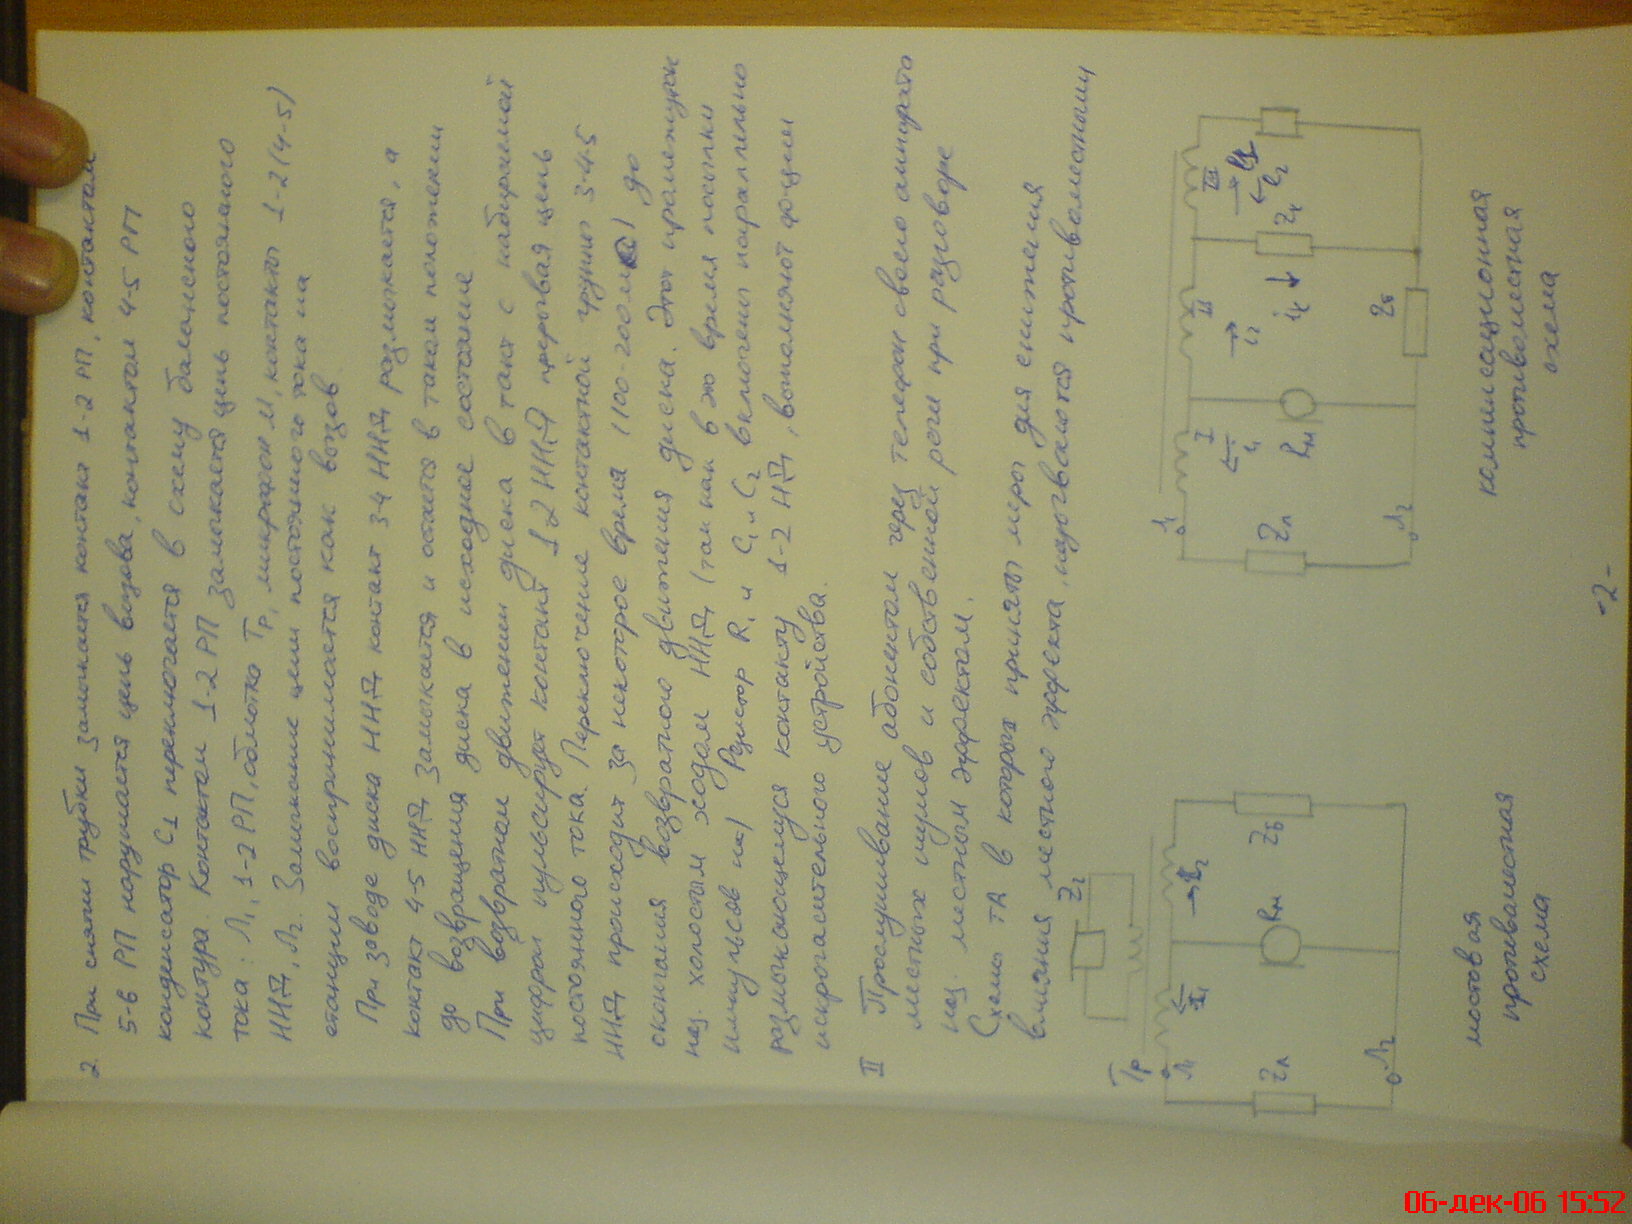 2. При снятии трубки замыкается контакт 1-2 РП, контактом
5-6 РП нарушается цепь вызова, контактом 4-5 РП
конденсатор С1 переключается в схему балансного
контура. Контактом 1-2 РП замыкается цепь постоянного
тока: Л1, 1-2 РП, обмотка Тр, микрофон М, контакты 1-2 (4-5)
ННД, Л2. Замыкание цепи постоянного тока на
станции воспринимается как вызов.
При заводе диска ННД контакт 3-4 ННД размыкается, а
контакт 4-5 ННД замыкается и остается в таком положении
до возвращения диска в исходное состояние
При возвратном движении диска в такт с набираемой
цифрой пульсирует контакт 1-2 ННД прерывая цепь
постоянного тока. Переключение контактной группы 3-4-5
ННД происходит за некоторое время (100-200мс) до
окончания возвратного движения диска. Этот промежуток
наз. холостым ходом ННД (так как в это время посылки
импульсов нет) Резистор R1 и С1 и С2 включены параллельно
размыкающемуся контакту 1-2 НД, выполняют функции
искрогасительного устройства.
II Прослушивание абонентом через телефон своего аппарата
местных шумов и собственной речи при разговоре
наз. местным эффектом.
Схемы ТА в которых приняты меры для снижения
влияния местного эффекта, называются противоместными
Тр
Z2
Л1
I1
I2
Zл
Rм
Zб
Л2
мостовая
противоместная
схема
Л1
I
II
III
i1
i2
Zл
Rм
iк
Zк
Zб
Л2
компенсационная
противоместная
схема
-2-
06-дек-06 15:52